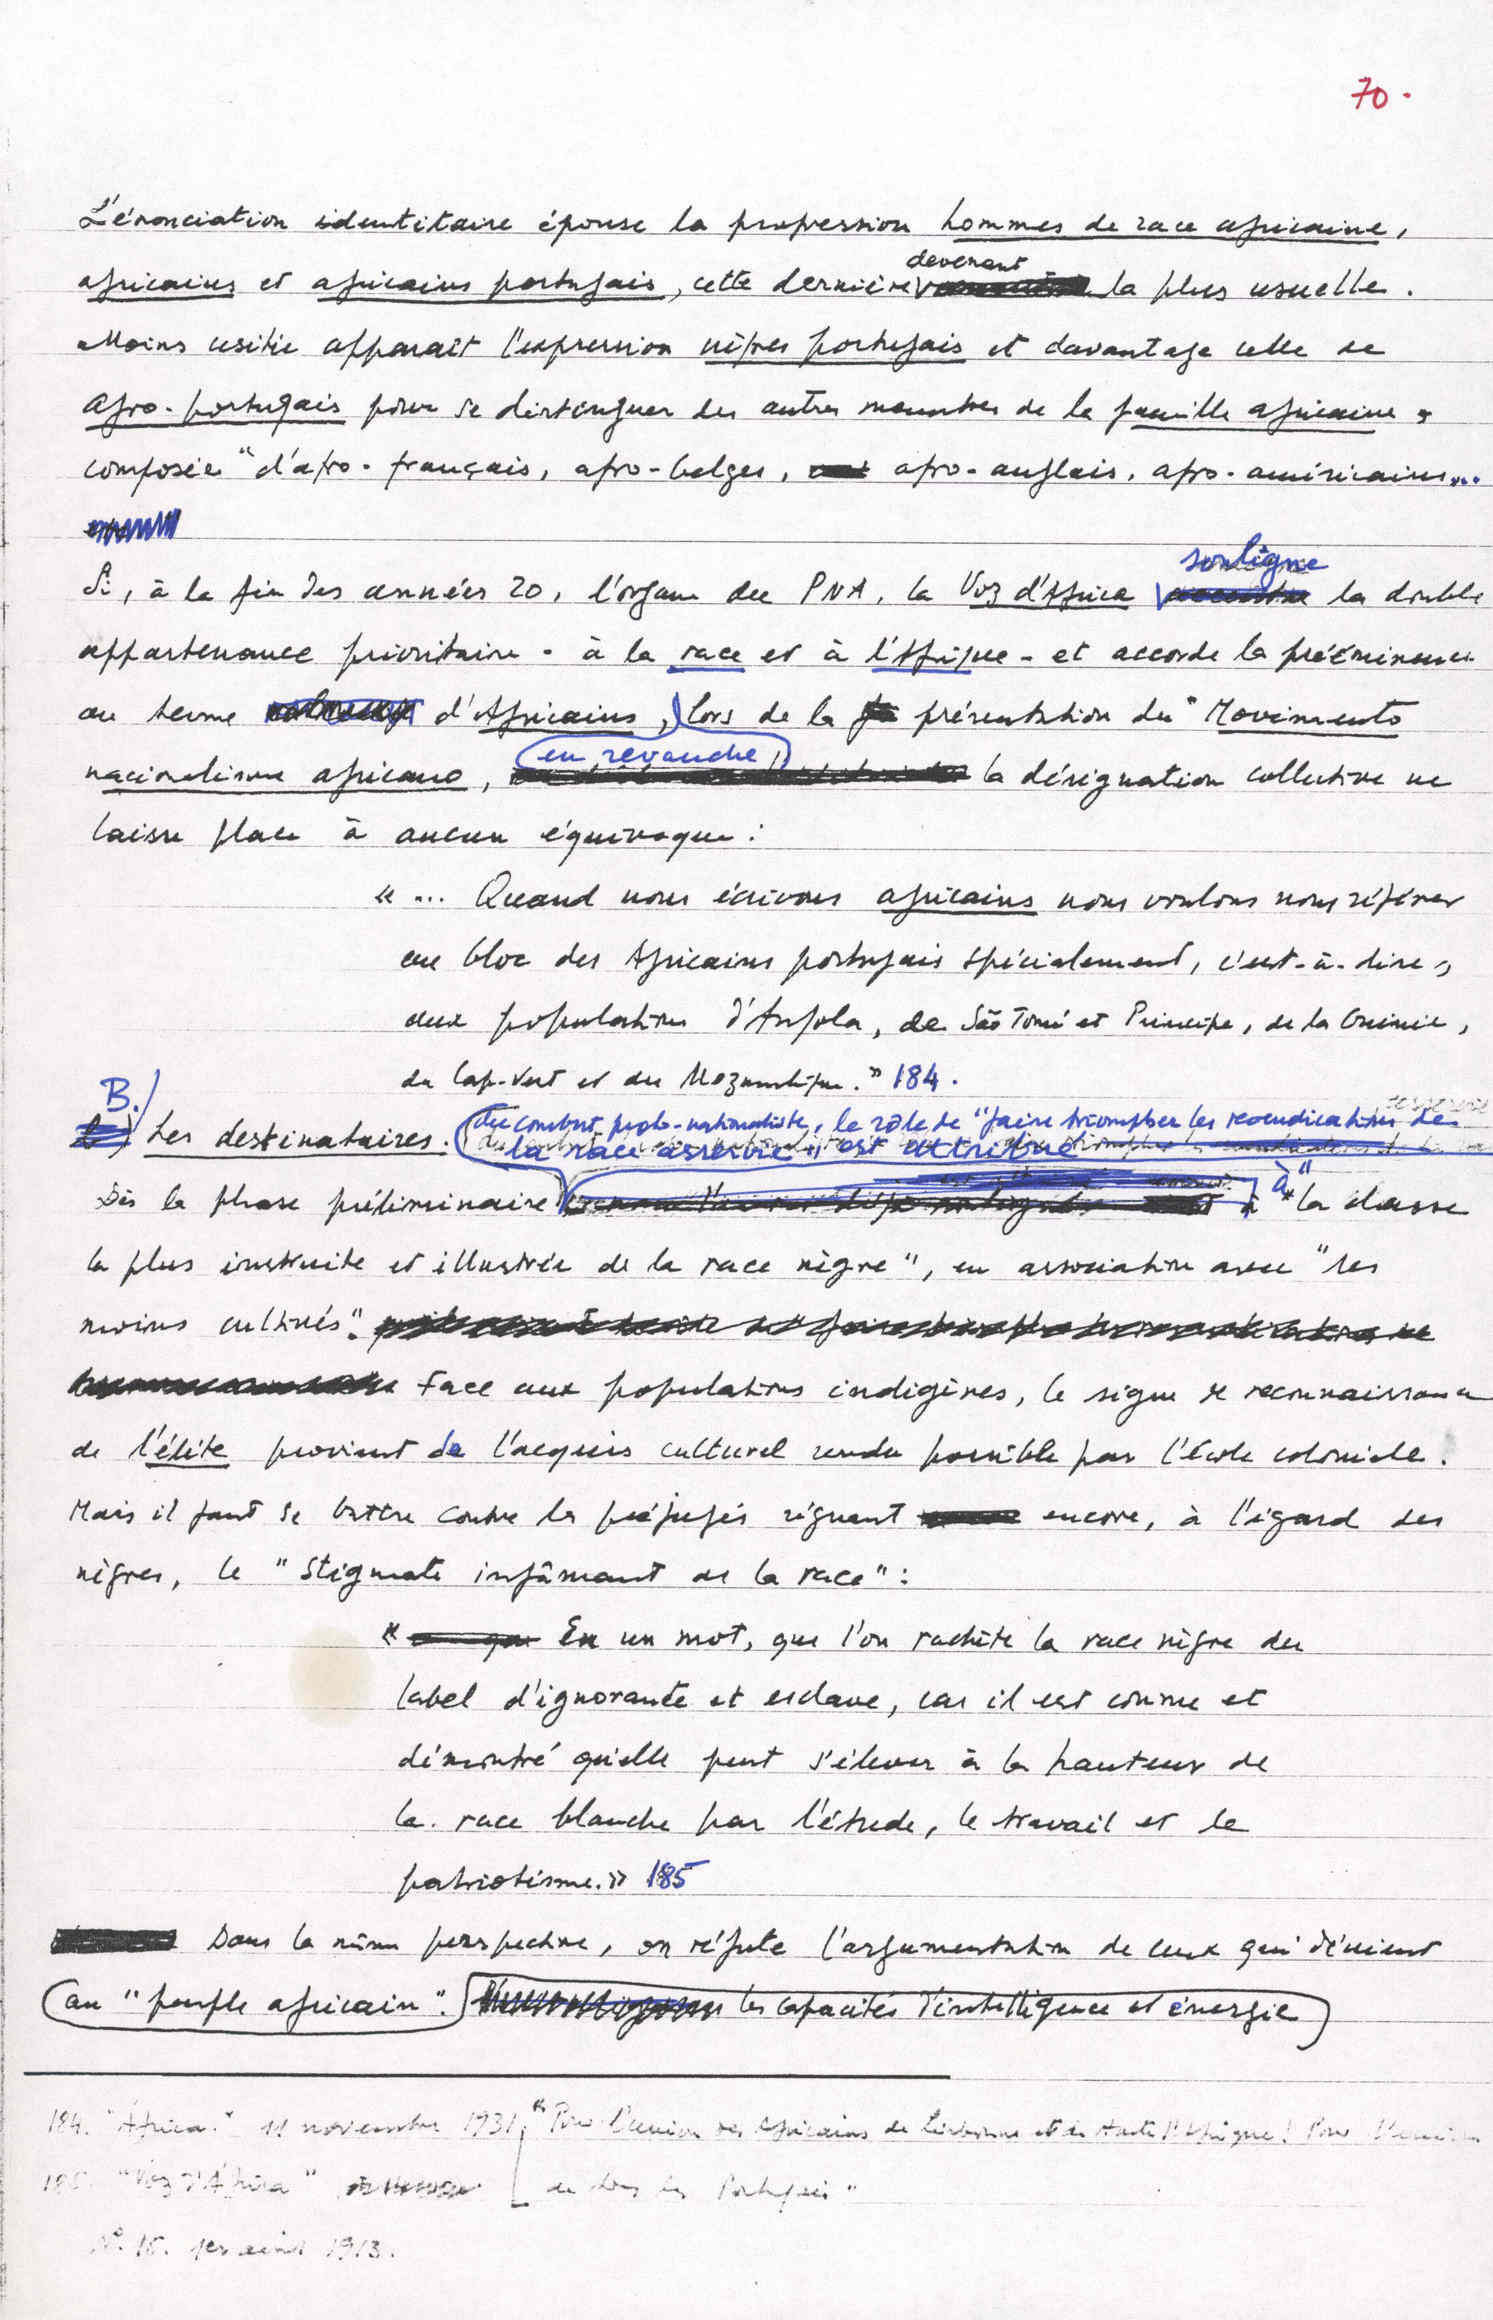 70.
L'énonciation identitaire épouse la progression hommes de race africaine,
devenant
africains et africains portugais, cette dernière la plus usuelle.
Moins usitée apparaît l'expression nègres portugais et davantage celle de
afro-portugais pour se distinguer des autres membres de la famille africaine,
composée "d'afro-français, afro-belges, afro-anglais, afro-américains...
souligne
Si, à la fin des années 20, l'organe du PNA, la Voz d'Africa la double
appartenance prioritaire - à la race et à l'Afrique - et accorde la prééminence
au terme d'Africains, lors de la présentation du "Movimento
en revanche,
nacionalisme africano, la désignation collective ne
laisse place à aucun équivoque :
« ... Quand nous écrivons africains nous voulons nous référer
au bloc des Africains portugais spécialement, c'est-à-dire,
aux populations d'Angola, de São Tomé et Principe, de la Guinée,
du Cap-Vert et du Mozambique. » 184.
B. Les destinataires.
du combat proto-nationaliste, le rôle de "faire triompher les revendications de
la race asservie" est attribué
Dès la phase préliminaire à "la classe
la plus instruite et illustrée de la race nègre", en association avec "les
moins cultivés".
Face aux populations indigènes, le signe de reconnaissance
de l'élite provient de l'acquis culturel rendu possible par l'école coloniale.
Mais il faut se battre contre les préjugés régnant encore, à l'égard des
nègres, le "stigmate infâmant de la race" :
« En un mot, que l'on rachète la race nègre du
label d'ignorante et esclave, car il est connu et
démontré qu'elle peut s'élever à la hauteur de
la race blanche par l'étude, le travail et le
patriotisme. » 185
Dans la même perspective, on réfute l'argumentation de ceux qui dénient
au "peuple africain". les capacités d'intelligence et énergie
184. "Africa." 11 novembre 1931, "Pour l'union des Africains de Lisbonne et de toute l'Afrique! Pour l'union
185. "Voz d'Africa" de tous les Portugais"
Nº 15. 1er 1913.